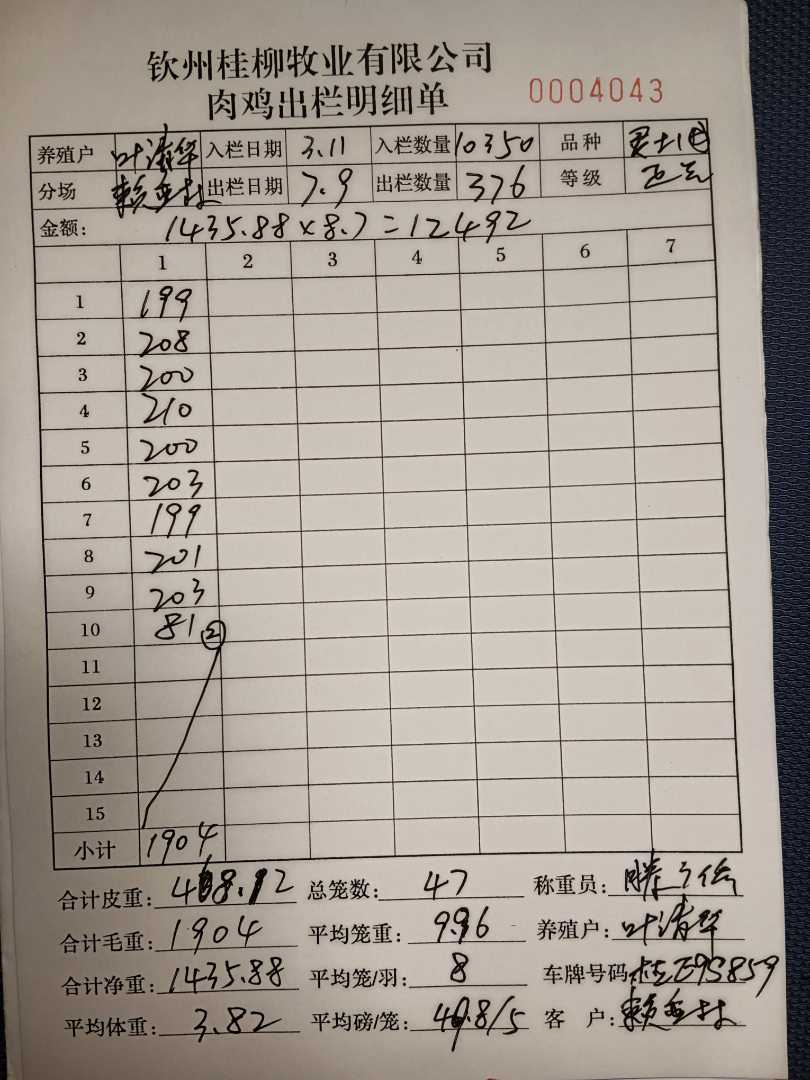 钦州桂柳牧业有限公司
肉鸡出栏明细单 0004043
养殖户 叶清华 入栏日期 3.11 入栏数量 10350 品种
分场 出栏日期 7.9 出栏数量 376 等级
金额: 1435.88×8.7=12492
1 2 3 4 5 6 7
1 199
2 208
3 200
4 210
5 200
6 203
7 199
8 201
9 203
10 81 ②
11
12
13
14
15
小计 1904
合计皮重: 468.12 总笼数: 47 称重员:
合计毛重: 1904 平均笼重: 9.96 养殖户: 叶清华
合计净重: 1435.88 平均笼/羽: 8 车牌号码: 桂E9S859
平均体重: 3.82 平均磅/笼: /5 客 户: